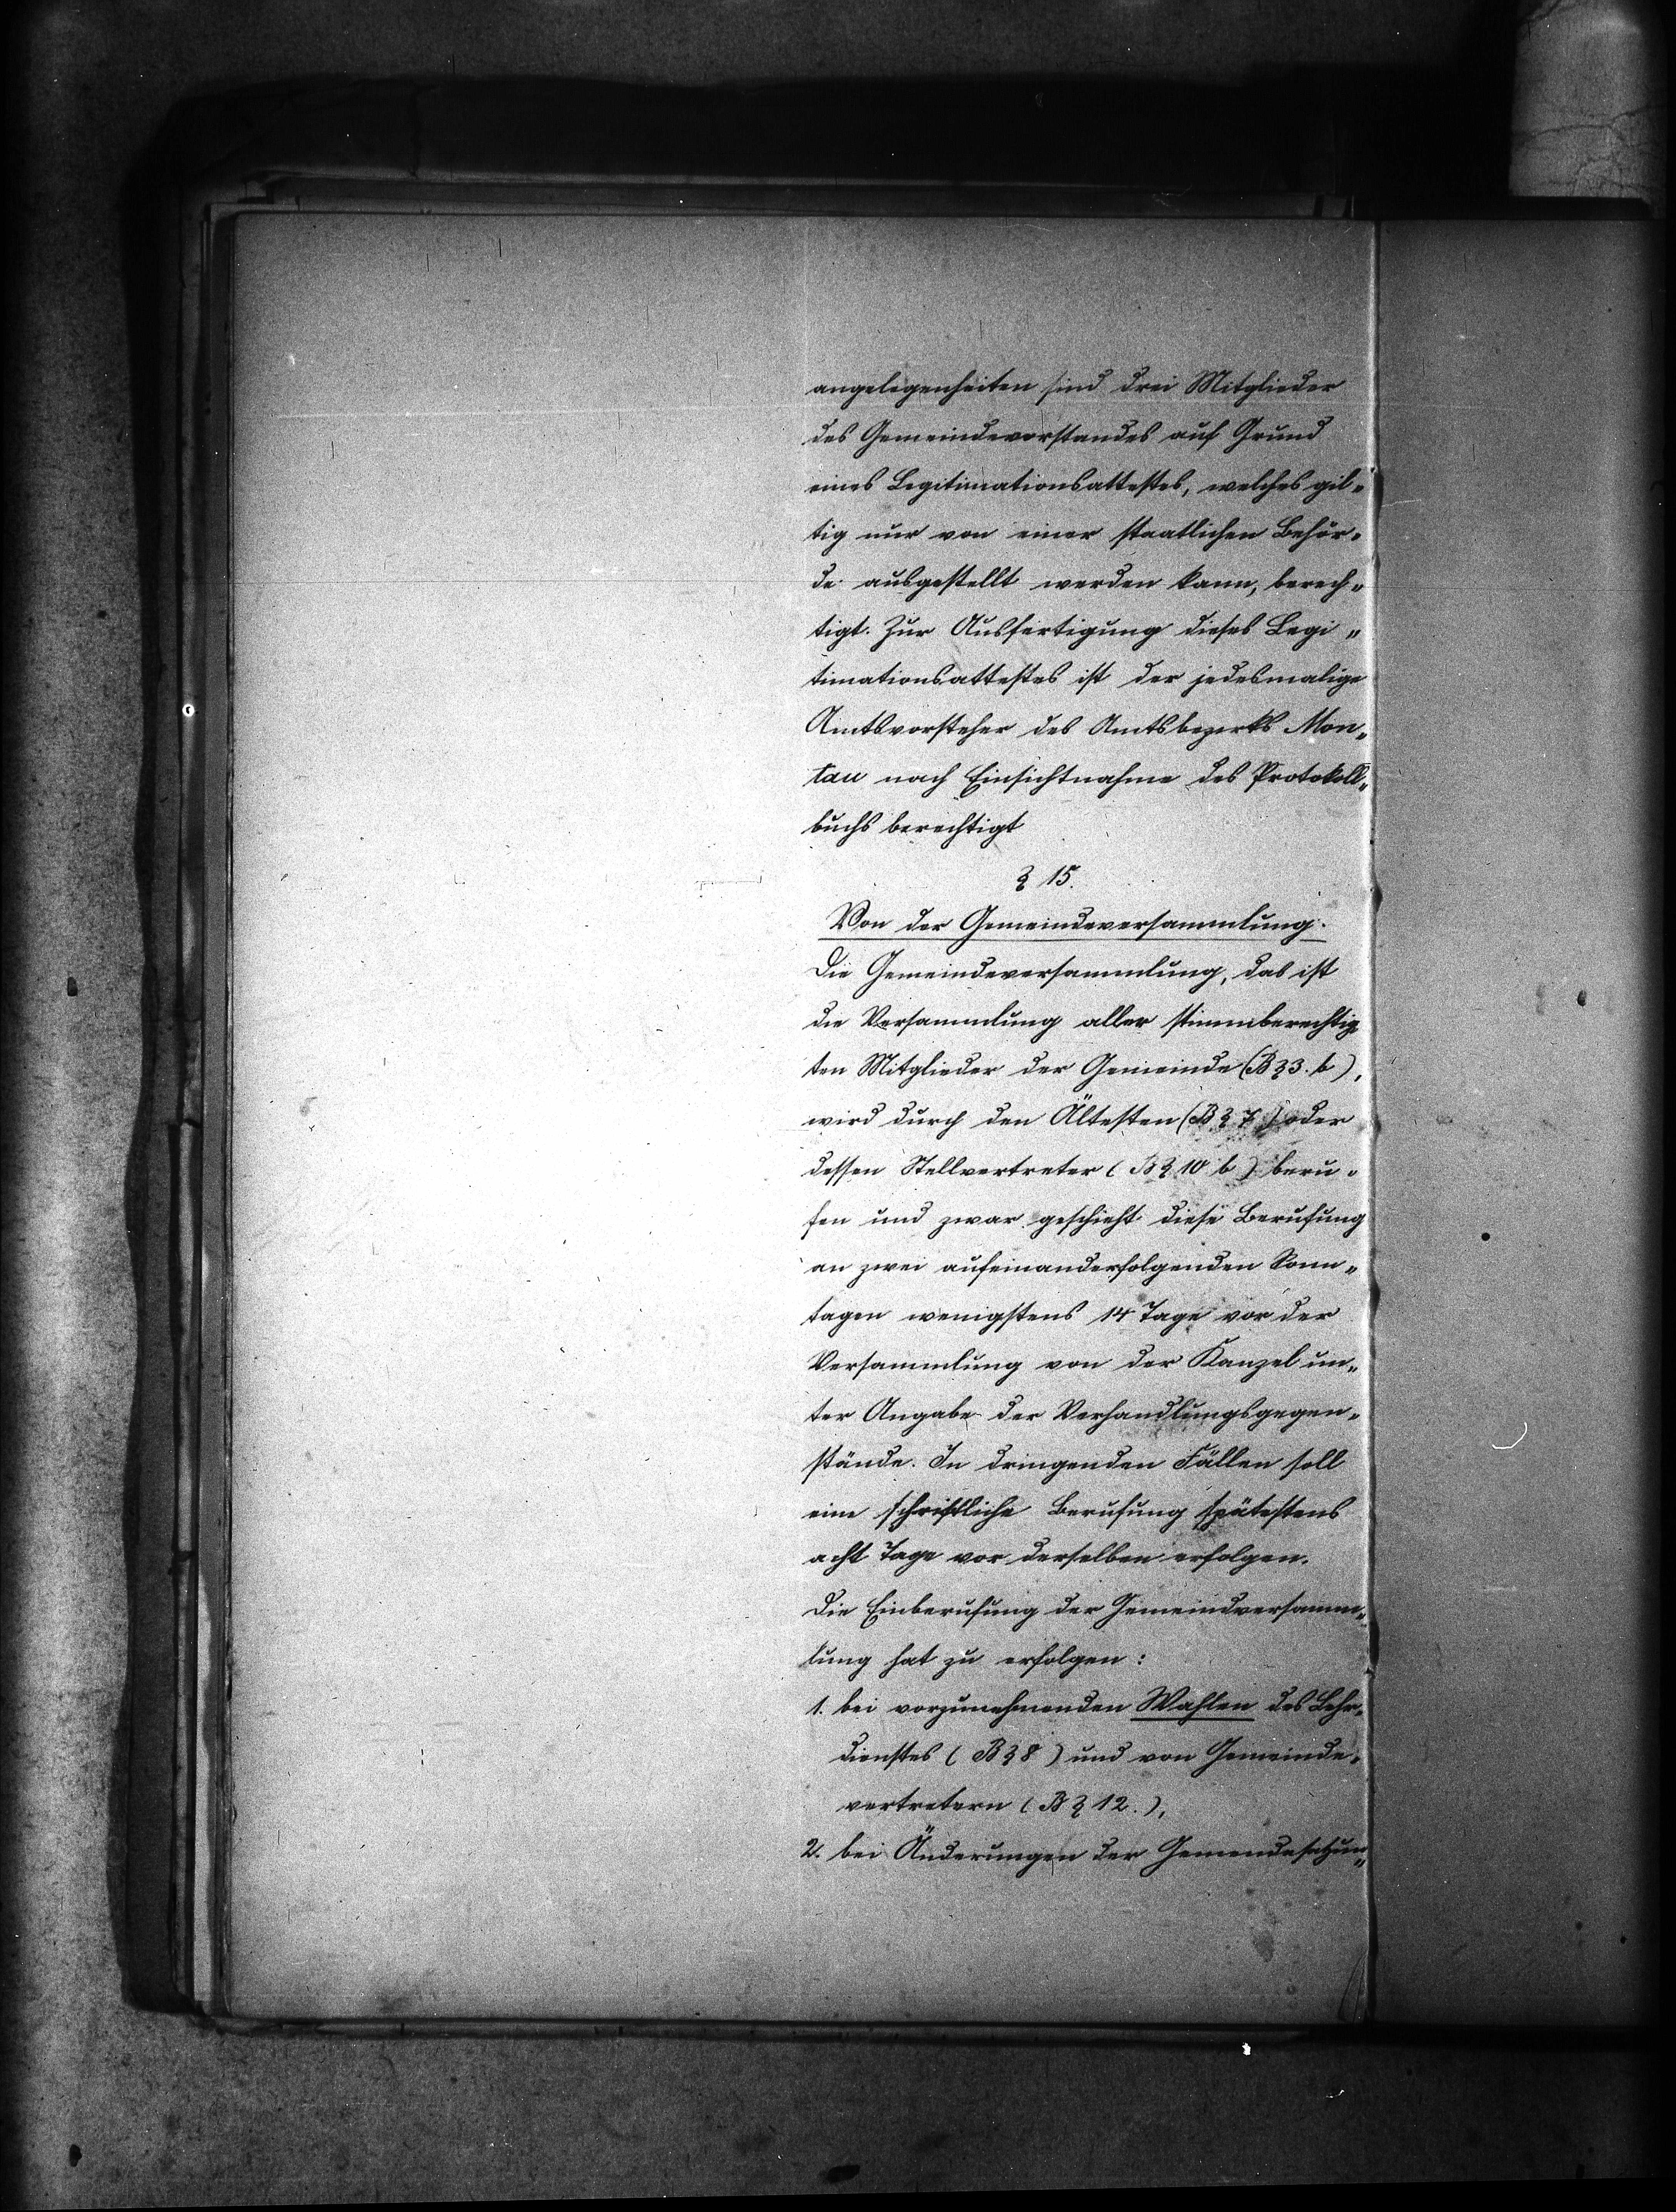 angelegenheiten sind drei Mitglieder
des Gemeindevorstandes auf Grund
eines Legitimationsattestes, welches gil„
tig nur von einer staatlichen Behör„
de ausgestellt werden kann, berech„
tigt. Zur Ausfertigung dieses Legi„
timationsattestes ist der jedesmalige
Amtsvorsteher des Amtsbezirks Mon„
tau nach Einsichtnahme des Protokoll„
buchs berechtigt
§ 15.
Von der Gemeindeversammlung.
Die Gemeindeversammlung, das ist
die Versammlung aller stimmberechtig„
ten Mitglieder der Gemeinde (B § 3. b),
wird durch den Ältesten (B § 7) oder
dessen Stellvertreter (B § 10 b) beru„
fen und zwar geschieht diese Berufung
an zwei aufeinanderfolgenden Sonn„
tagen wenigstens 14 Tage vor der
Versammlung von der Kanzel un„
ter Angabe der Verhandlungsgegen„
stände. In dringenden Fällen soll
eine schriftliche Berufung spätestens
acht Tage vor derselben erfolgen.
Die Einberufung der Gemeindversamm„
lung hat zu erfolgen:
1. bei vorzunehmenden Wahlen des Lehr„
dienstes (B § 8) und von Gemeinde„
vertretern (B § 12.),
2. bei Änderungen der Gemeindesatzun„